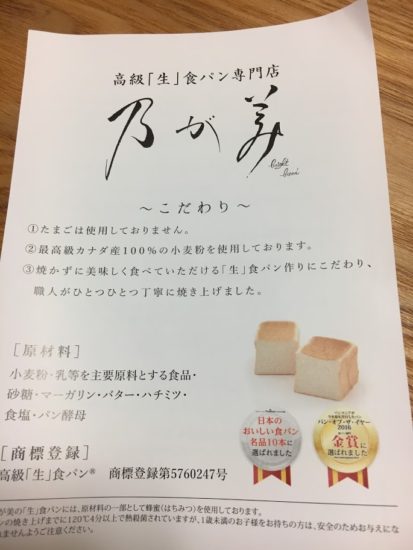 高級「生」食パン専門店
乃が美
～こだわり～
①たまごは使用しておりません。
②最高級カナダ産100%の小麦粉を使用しております。
③焼かずに美味しく食べていただける「生」食パン作りにこだわり、
職人がひとつひとつ丁寧に焼き上げました。
［原材料］
小麦粉・乳等を主要原料とする食品・
砂糖・マーガリン・バター・ハチミツ・
食塩・パン酵母
日本の
おいしい食パン
名品10本に
選ばれました
パン・オブ・ザ・イヤー
2016
金賞に
選ばれました
［商標登録］
高級「生」食パン® 商標登録第5760247号
が美の「生」食パンには、原材料の一部として蜂蜜（はちみつ）を使用しております。
ンの焼き上げまでに120℃4分以上で熱殺菌されていますが、1歳未満のお子様をお持ちの方は、安全のためお与えにな
れませんようご注意ください。